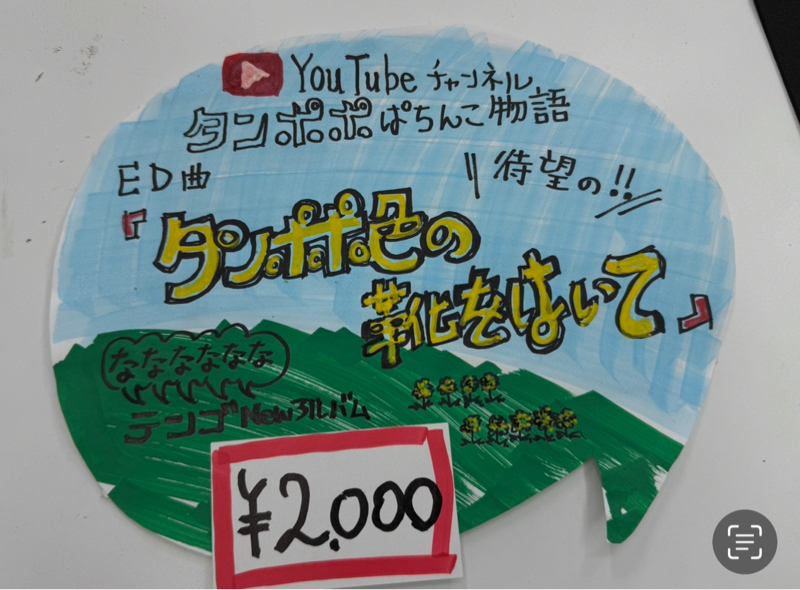 YouTube チャンネル
タンポポぱちんこ物語
ED曲
待望の!!
『タンポポ色の
革化をはいて』
なななななな
テンゴNewアルバム
¥2,000